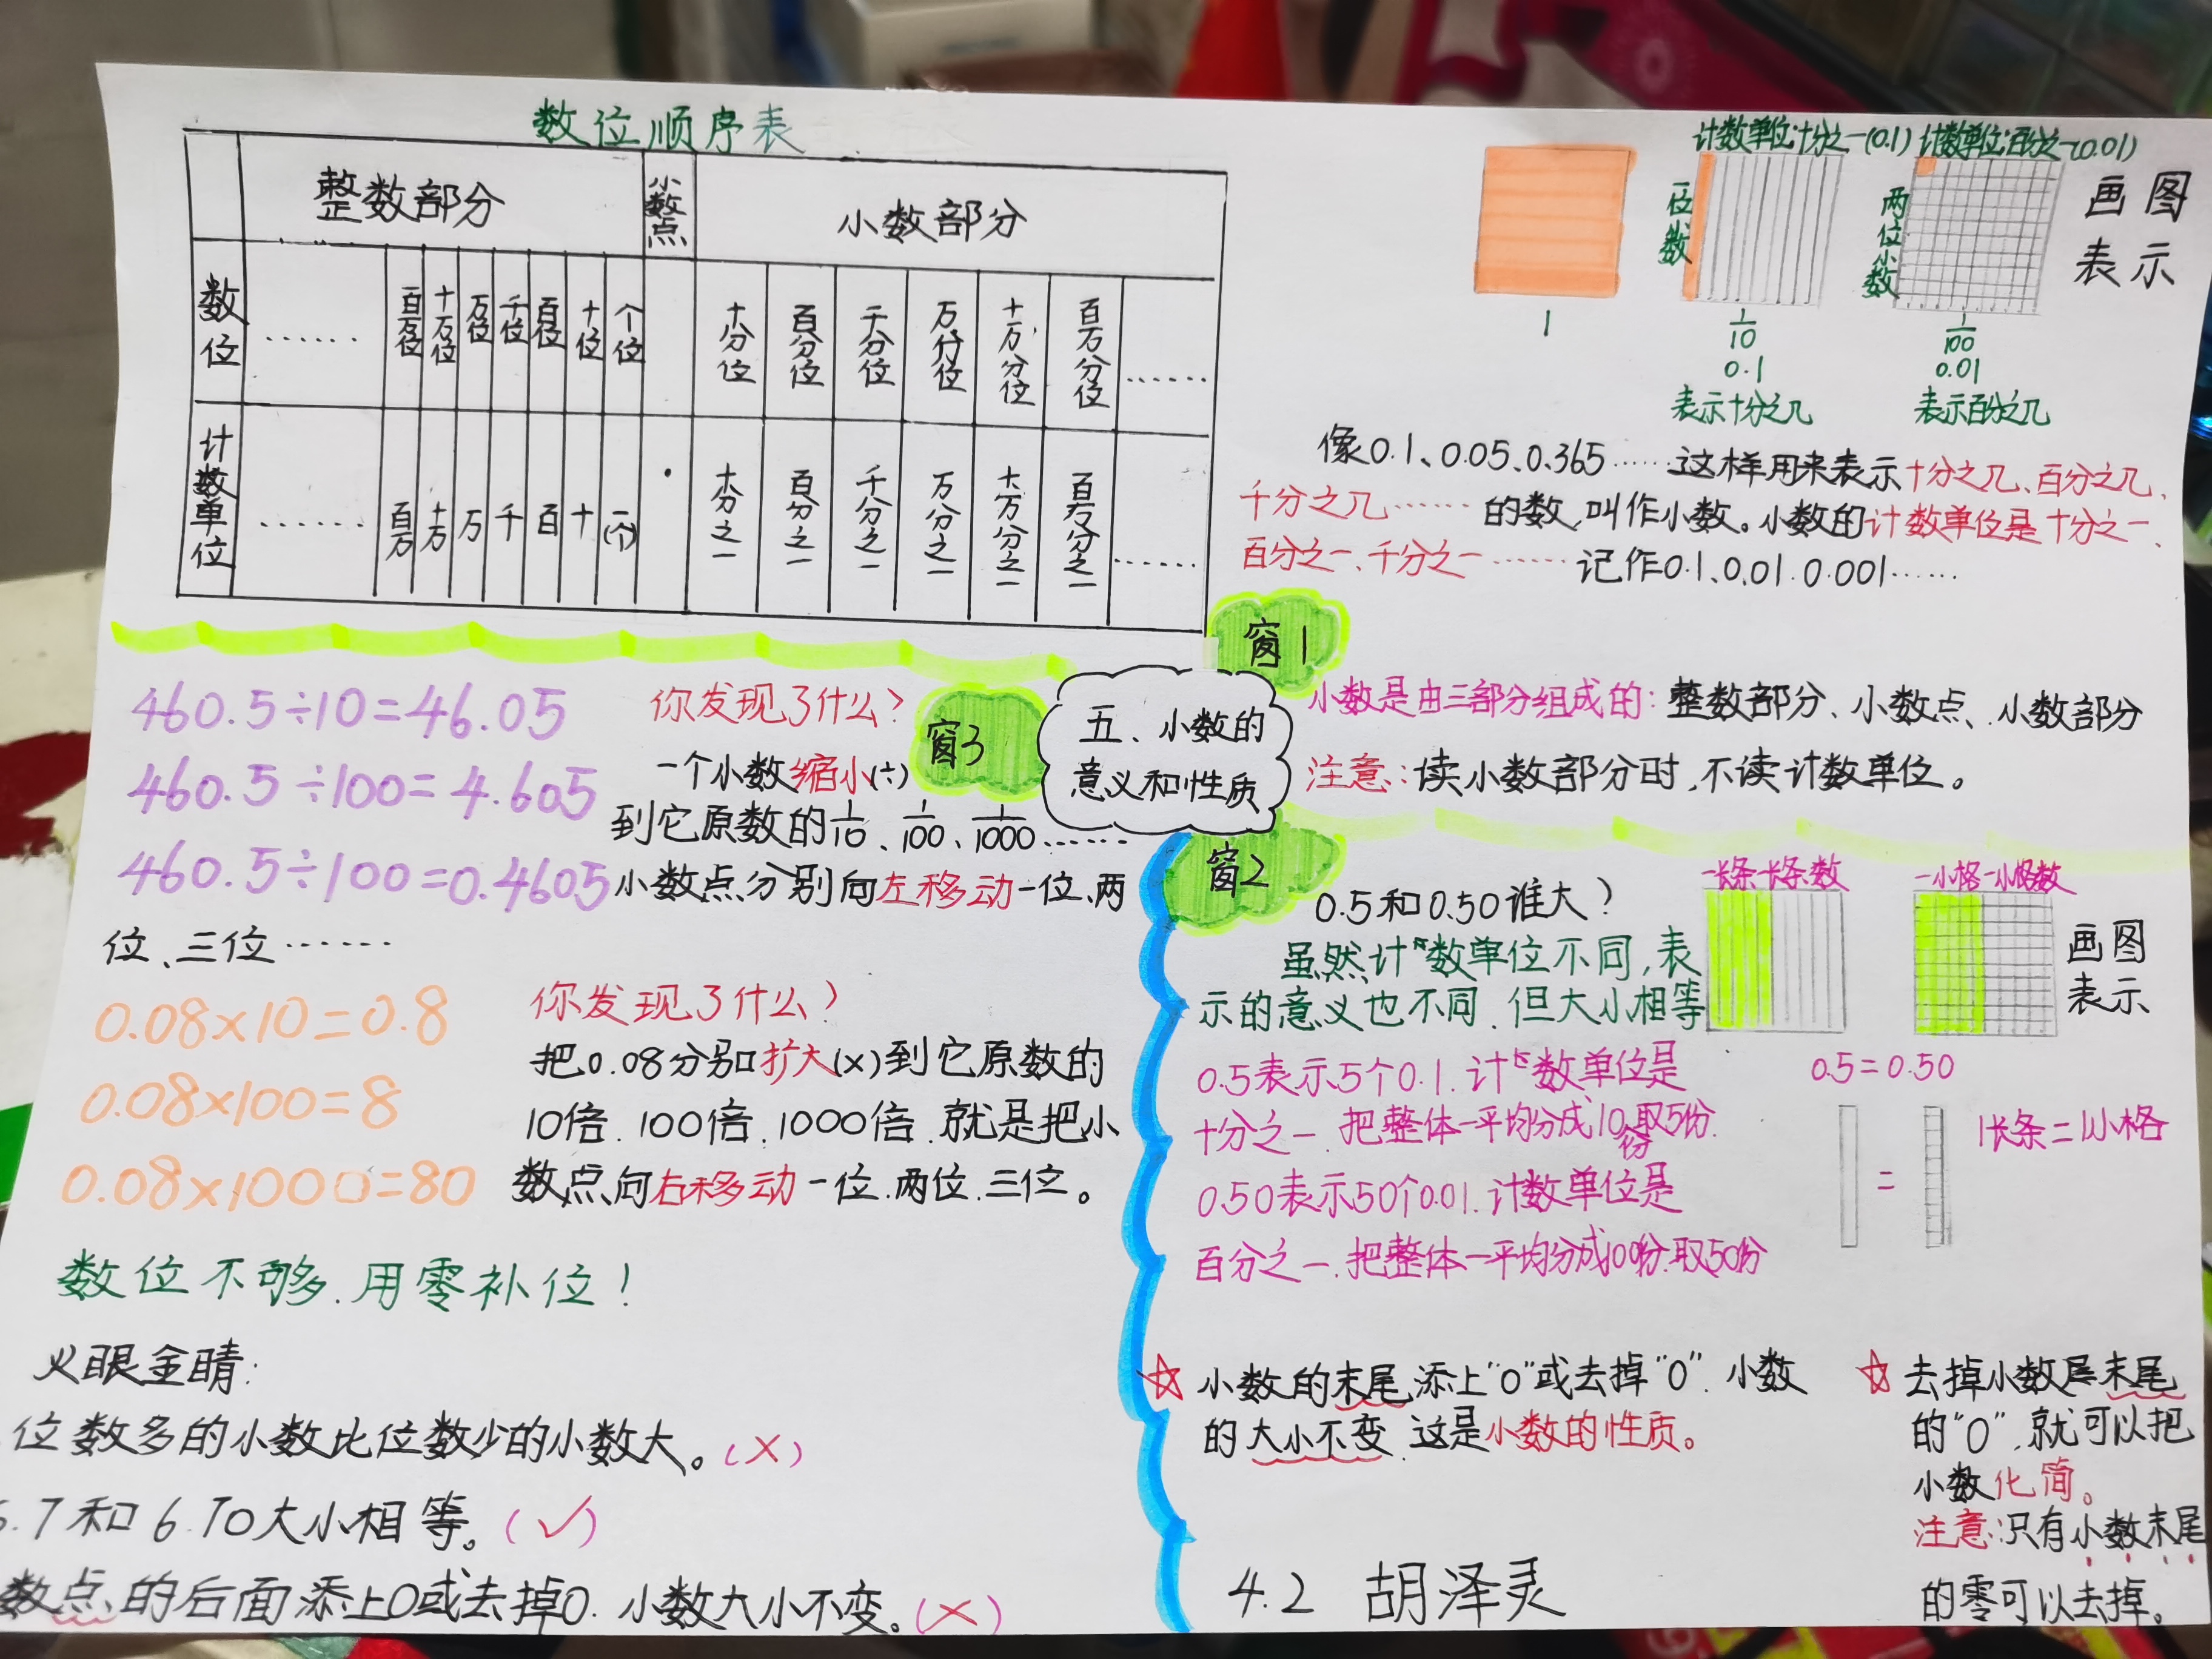 数位顺序表
整数部分 小数点 小数部分
数位 …… 百万位 十万位 万位 千位 百位 十位 个位 十分位 百分位 千分位 万分位 十万分位 百万分位 ……
计数单位 …… 百万 十万 万 千 百 十 一(个) · 十分之一 百分之一 千分之一 万分之一 十万分之一 百万分之一 ……
计数单位:十分之一(0.1) 计数单位:百分之一(0.01)
一位小数
两位小数
画图
表示
1
1/10
0.1
表示十分之几
1/100
0.01
表示百分之几
像0.1、0.05、0.365……这样用来表示十分之几、百分之几、
千分之几……的数,叫作小数。小数的计数单位是十分之一、
百分之一、千分之一……记作0.1、0.01、0.001……
窗1
小数是由三部分组成的:整数部分、小数点、小数部分
注意:读小数部分时,不读计数单位。
五、小数的
意义和性质
窗3
460.5÷10=46.05
460.5÷100=4.605
460.5÷100=0.4605
你发现了什么?
一个小数缩小(÷)
到它原数的1/10、1/100、1/1000……
小数点分别向左移动一位、两
位、三位……
0.08×10=0.8
0.08×100=8
0.08×1000=80
你发现了什么?
把0.08分别扩大(×)到它原数的
10倍、100倍、1000倍、就是把小
数点向右移动一位、两位、三位。
数位不够、用零补位!
火眼金睛:
位数多的小数比位数少的小数大。(×)
.7和6.70大小相等。(√)
数点的后面添上0或去掉0、小数大小不变。(×)
窗2
0.5和0.50谁大?
虽然计数单位不同,表
示的意义也不同、但大小相等
一长条一长条数
一小格一小格数
画图
表示
0.5=0.50
0.5表示5个0.1、计数单位是
十分之一、把整体一平均分成10份取5份、
0.50表示50个0.01、计数单位是
百分之一、把整体一平均分成100份、取50份
=
1长条=1小格
☆小数的末尾添上“0”或去掉“0”、小数
的大小不变、这是小数的性质。
☆去掉小数末尾
的“0”,就可以把
小数化简。
注意:只有小数末尾
的零可以去掉。
4.2 胡泽灵